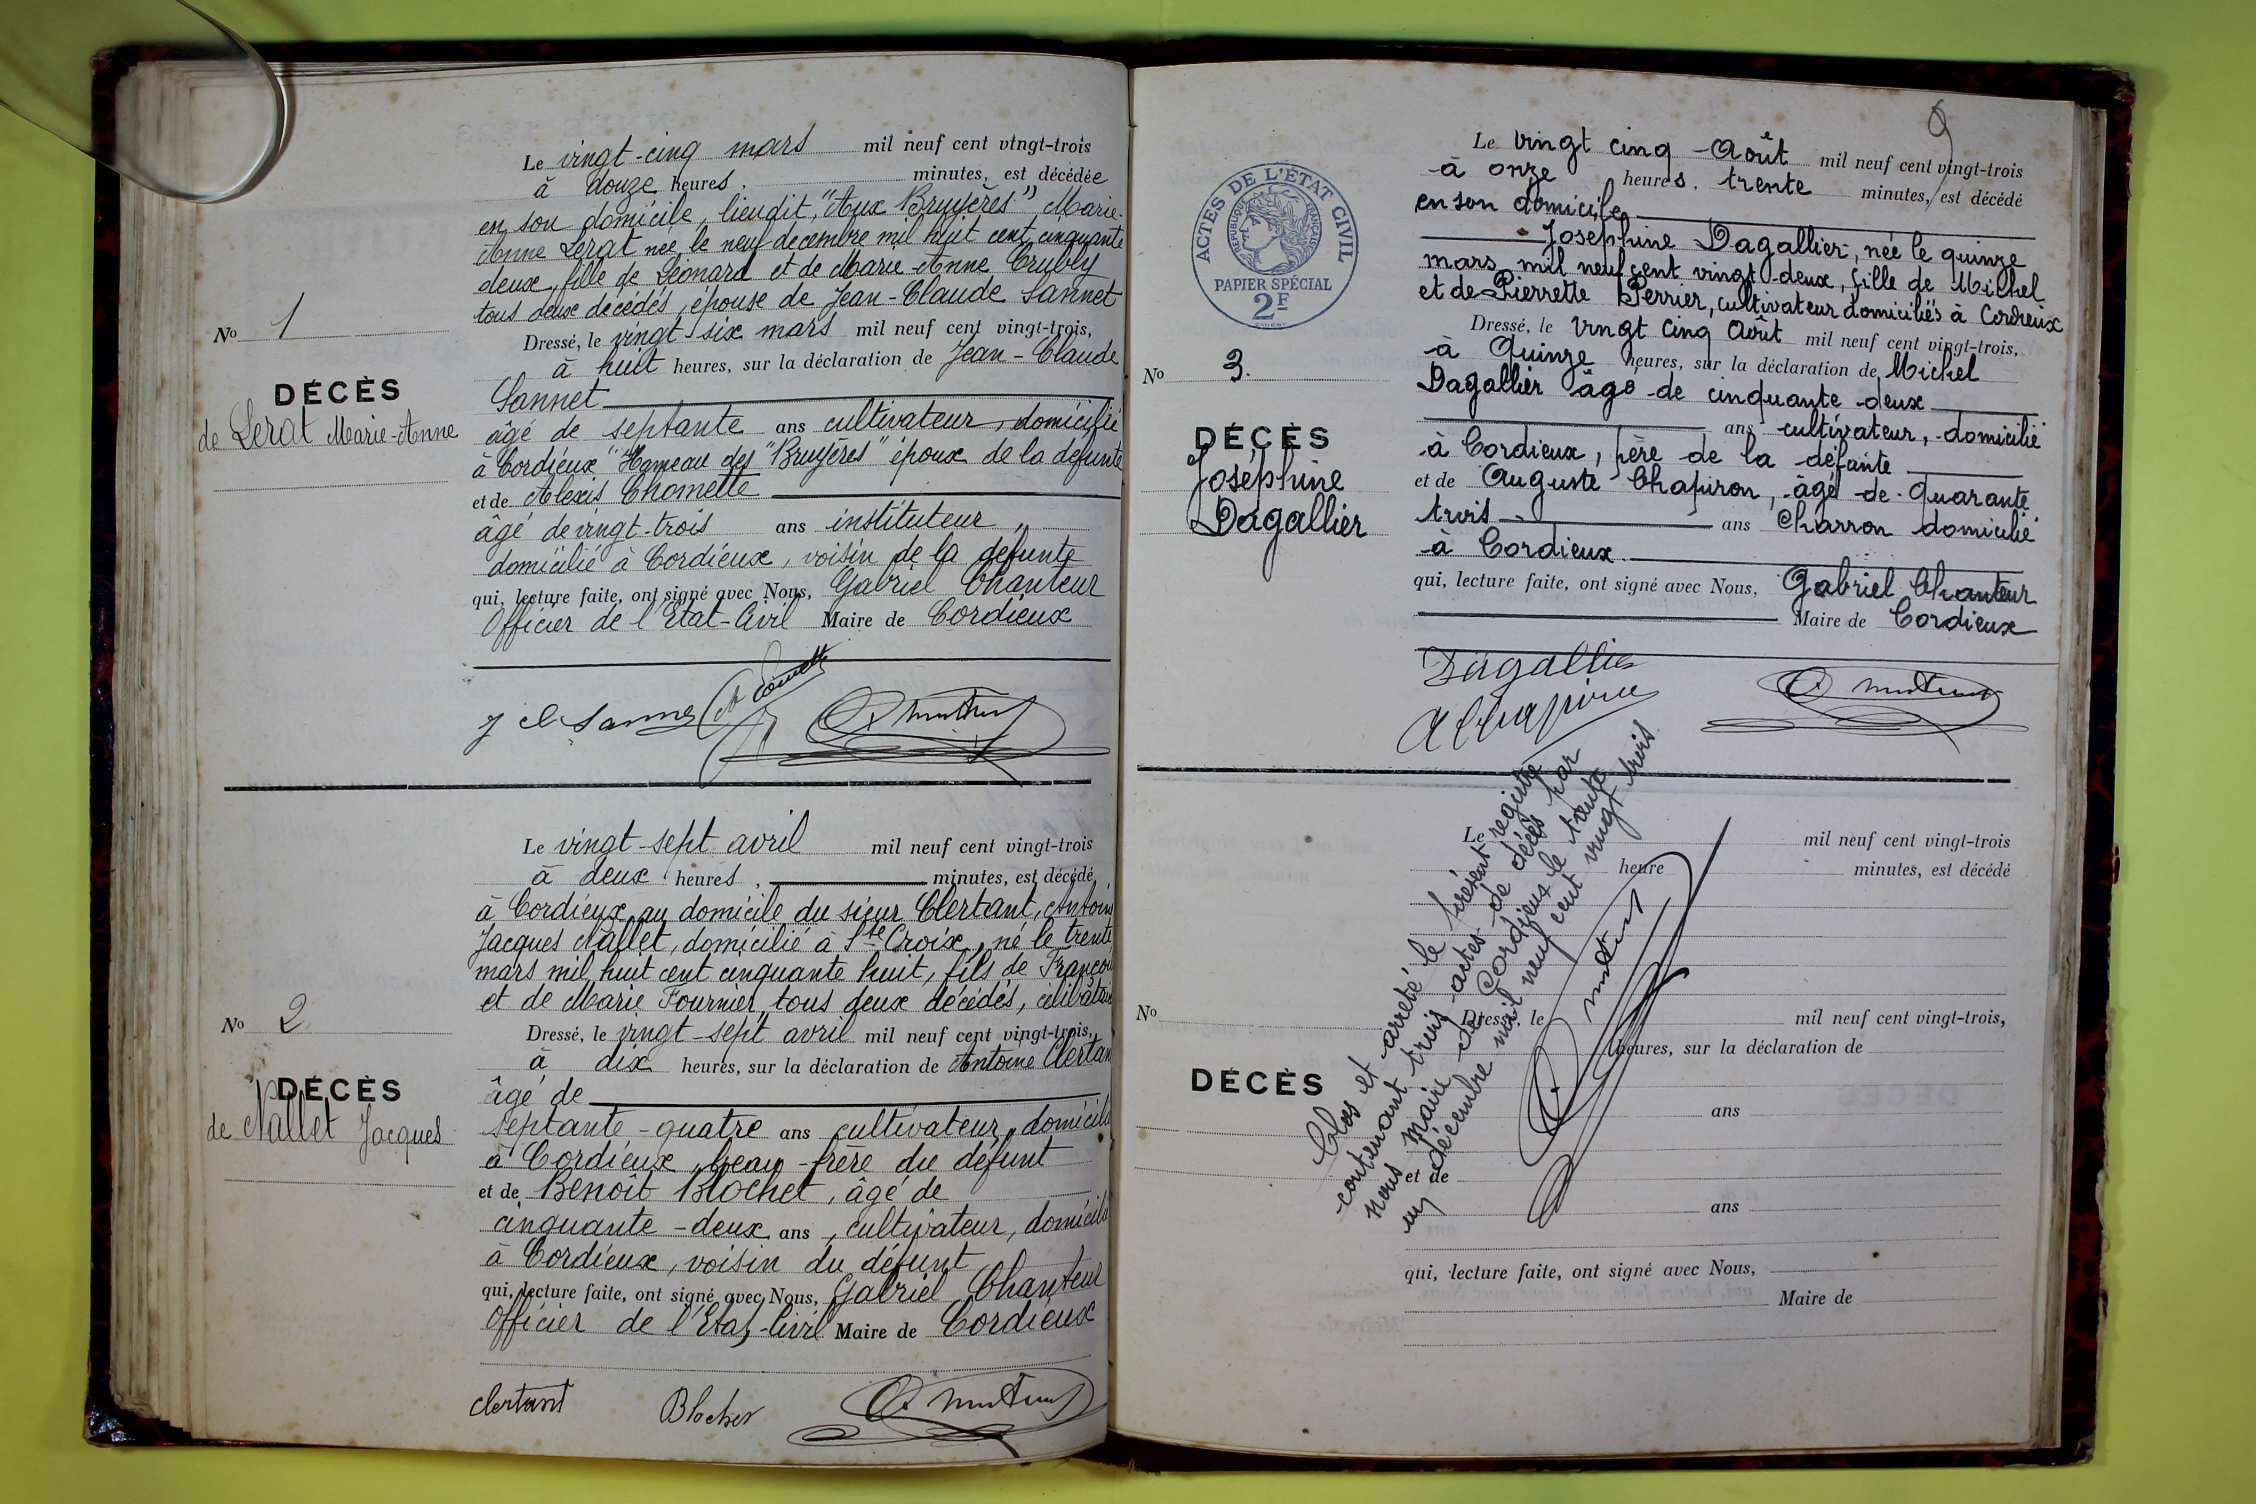 Le vingt-cinq mars mil neuf cent vingt-trois
à douze heures, minutes, est décédée
en son domicile, lieudit, "Aux Bruyères", Marie-
Anne Lerat née le neuf décembre mil huit cent cinquante
deux, fille de Léonard et de Marie-Anne
tous deux décédés, épouse de Jean-Claude Sannet
Dressé, le vingt six mars mil neuf cent vingt-trois,
à huit heures, sur la déclaration de Jean-Claude
Sannet
âgé de septante ans cultivateur, domicilié
à Cordieux "Hameau des "Bruyères" époux de la défunte
et de Alexis Chomette
âgé de vingt-trois ans instituteur,
domicilié à Cordieux, voisin de la défunte
qui, lecture faite, ont signé avec Nous, Gabriel Chanteur
Officier de l'Etat-Civil Maire de Cordieux
No 1
DÉCÈS
de Lerat Marie-Anne
j cl Sannet
Le vingt-sept avril mil neuf cent vingt-trois
à deux heures, minutes, est décédé
à Cordieux au domicile du sieur Clertant, Antoine
Jacques Nallet, domicilié à Ste Croix, né le trente
mars mil huit cent cinquante huit, fils de François
et de Marie Fournier, tous deux décédés, célibataire
Dressé, le vingt-sept avril mil neuf cent vingt-trois,
à dix heures, sur la déclaration de Antoine Clertan
âgé de
septante-quatre ans cultivateur, domicilié
à Cordieux, beau-frère du défunt
et de Benoît Blochet, âgé de
cinquante-deux ans, cultivateur, domicilié
à Cordieux, voisin du défunt
qui, lecture faite, ont signé avec Nous, Gabriel Chanteur
Officier de l'Etat-Civil Maire de Cordieux
No 2
DÉCÈS
de Nallet Jacques
clertant Blochet
9
ACTES DE L'ÉTAT CIVIL
RÉPUBLIQUE FRANÇAISE
PAPIER SPÉCIAL
2F
Le vingt cinq Août mil neuf cent vingt-trois
à onze heures. trente minutes, est décédé
en son domicile
Joséphine Dagallier, née le quinze
mars mil neuf cent vingt-deux, fille de Michel
et de Pierrette Perrier, cultivateur domiciliés à Cordieux
Dressé, le vingt cinq Août mil neuf cent vingt-trois,
à Quinze heures, sur la déclaration de Michel
Dagallier âgé de cinquante deux
ans cultivateur, domicilié
à Cordieux, père de la défunte
et de Auguste Chapiron, âgé de quarante
trois ans Charron domicilié
à Cordieux.
qui, lecture faite, ont signé avec Nous, Gabriel Chanteur
Maire de Cordieux
No 3.
DÉCÈS
Joséphine
Dagallier
Dagallier
A Chapiron
Clos et arreté le présent registre
contenant trois actes de décès par
nous maire de Cordieux le trente
un décembre mil neuf cent vingt trois.
Le mil neuf cent vingt-trois
heure minutes, est décédé
Dressé, le mil neuf cent vingt-trois,
heures, sur la déclaration de
ans
et de
ans
qui, lecture faite, ont signé avec Nous,
Maire de
No
DÉCÈS